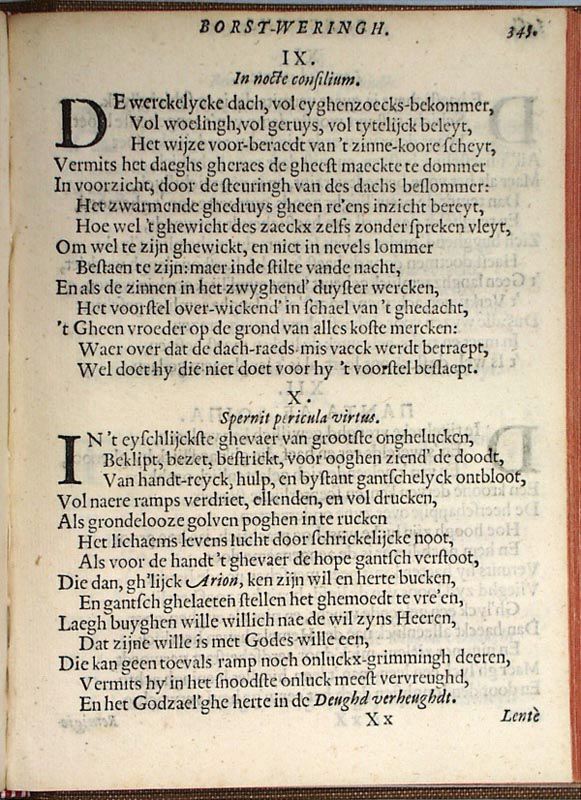 BORST-WERINGH. 345.
IX.
In nocte consilium.
DE werckelycke dach, vol eyghenzoecks-bekommer,
Vol woelingh, vol geruys, vol tytelijck beleyt,
Het wijze voor-beraedt van 't zinne-koore scheyt,
Vermits het daeghs gheraes de gheest maeckte te dommer
In voorzicht, door de steuringh van des dachs beslommer:
Het zwarmende ghedruys gheen re'ens inzicht bereyt,
Hoe wel 't ghewicht des zaeckx zelfs zonder spreken vleyt,
Om wel te zijn ghewickt, en niet in nevels lommer
Bestaen te zijn: maer inde stilte vande nacht,
En als de zinnen in het zwyghend' duyster wercken,
Het voorstel over-wickend' in schael van 't ghedacht,
't Gheen vroeder op de grond van alles koste mercken:
Waer over dat de dach-raeds-mis vaeck werdt betraept,
Wel doet hy die niet doet voor hy 't voorstel beslaept.
X.
Spernit pericula virtus.
IN 't eyschlijckste ghevaer van grootste onghelucken,
Beklipt, bezet, bestrickt, voor ooghen ziend' de doodt,
Van handt-reyck, hulp, en bystant gantschelyck ontbloot,
Vol naere ramps verdriet, ellenden, en vol drucken,
Als grondelooze golven poghen in te rucken
Het lichaems levens lucht door schrickelijcke noot,
Als voor de handt 't ghevaer de hope gantsch verstoot,
Die dan, gh'lijck Arion, ken zijn wil en herte bucken,
En gantsch ghelaeten stellen het ghemoedt te vre'en,
Laegh buyghen wille willich nae de wil zyns Heeren,
Dat zijne wille is met Godes wille een,
Die kan geen toevals ramp noch onluckx-grimmingh deeren,
Vermits hy in het snoodste onluck meest vervreughd,
En het Godzael'ghe herte in de Deughd verheughdt.
Xx Lente